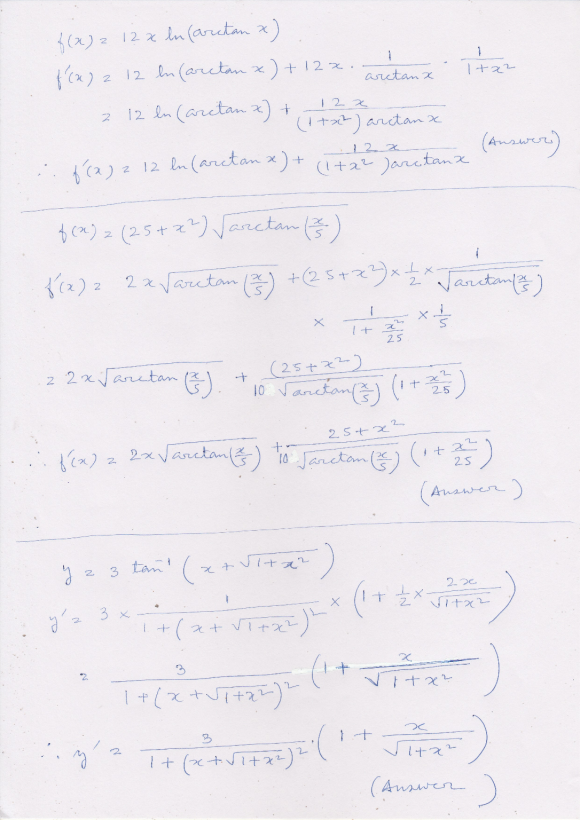 f(x) = 12x ln(arctan x)
f'(x) = 12 ln(arctan x) + 12x · 1/(arctan x) · 1/(1+x²)
= 12 ln(arctan x) + 12x/((1+x²) arctan x)
∴ f'(x) = 12 ln(arctan x) + 12x/((1+x²) arctan x) (Answer)
f(x) = (25+x²) √(arctan(x/5))
f'(x) = 2x √(arctan(x/5)) + (25+x²) × 1/2 × 1/√(arctan(x/5))
× 1/(1 + x²/25) × 1/5
= 2x √(arctan(x/5)) + (25+x²)/(10 √(arctan(x/5)) (1 + x²/25))
f'(x) = 2x √(arctan(x/5)) + 25+x²/(10 √(arctan(x/5)) (1 + x²/25))
(Answer)
y = 3 tan⁻¹ (x + √(1+x²))
y' = 3 × 1/(1 + (x + √(1+x²))²) × (1 + 1/2 × 2x/√(1+x²))
= 3/(1 + (x + √(1+x²))²) (1 + x/√(1+x²))
∴ y' = 3/(1 + (x + √(1+x²))²) · (1 + x/√(1+x²))
(Answer)